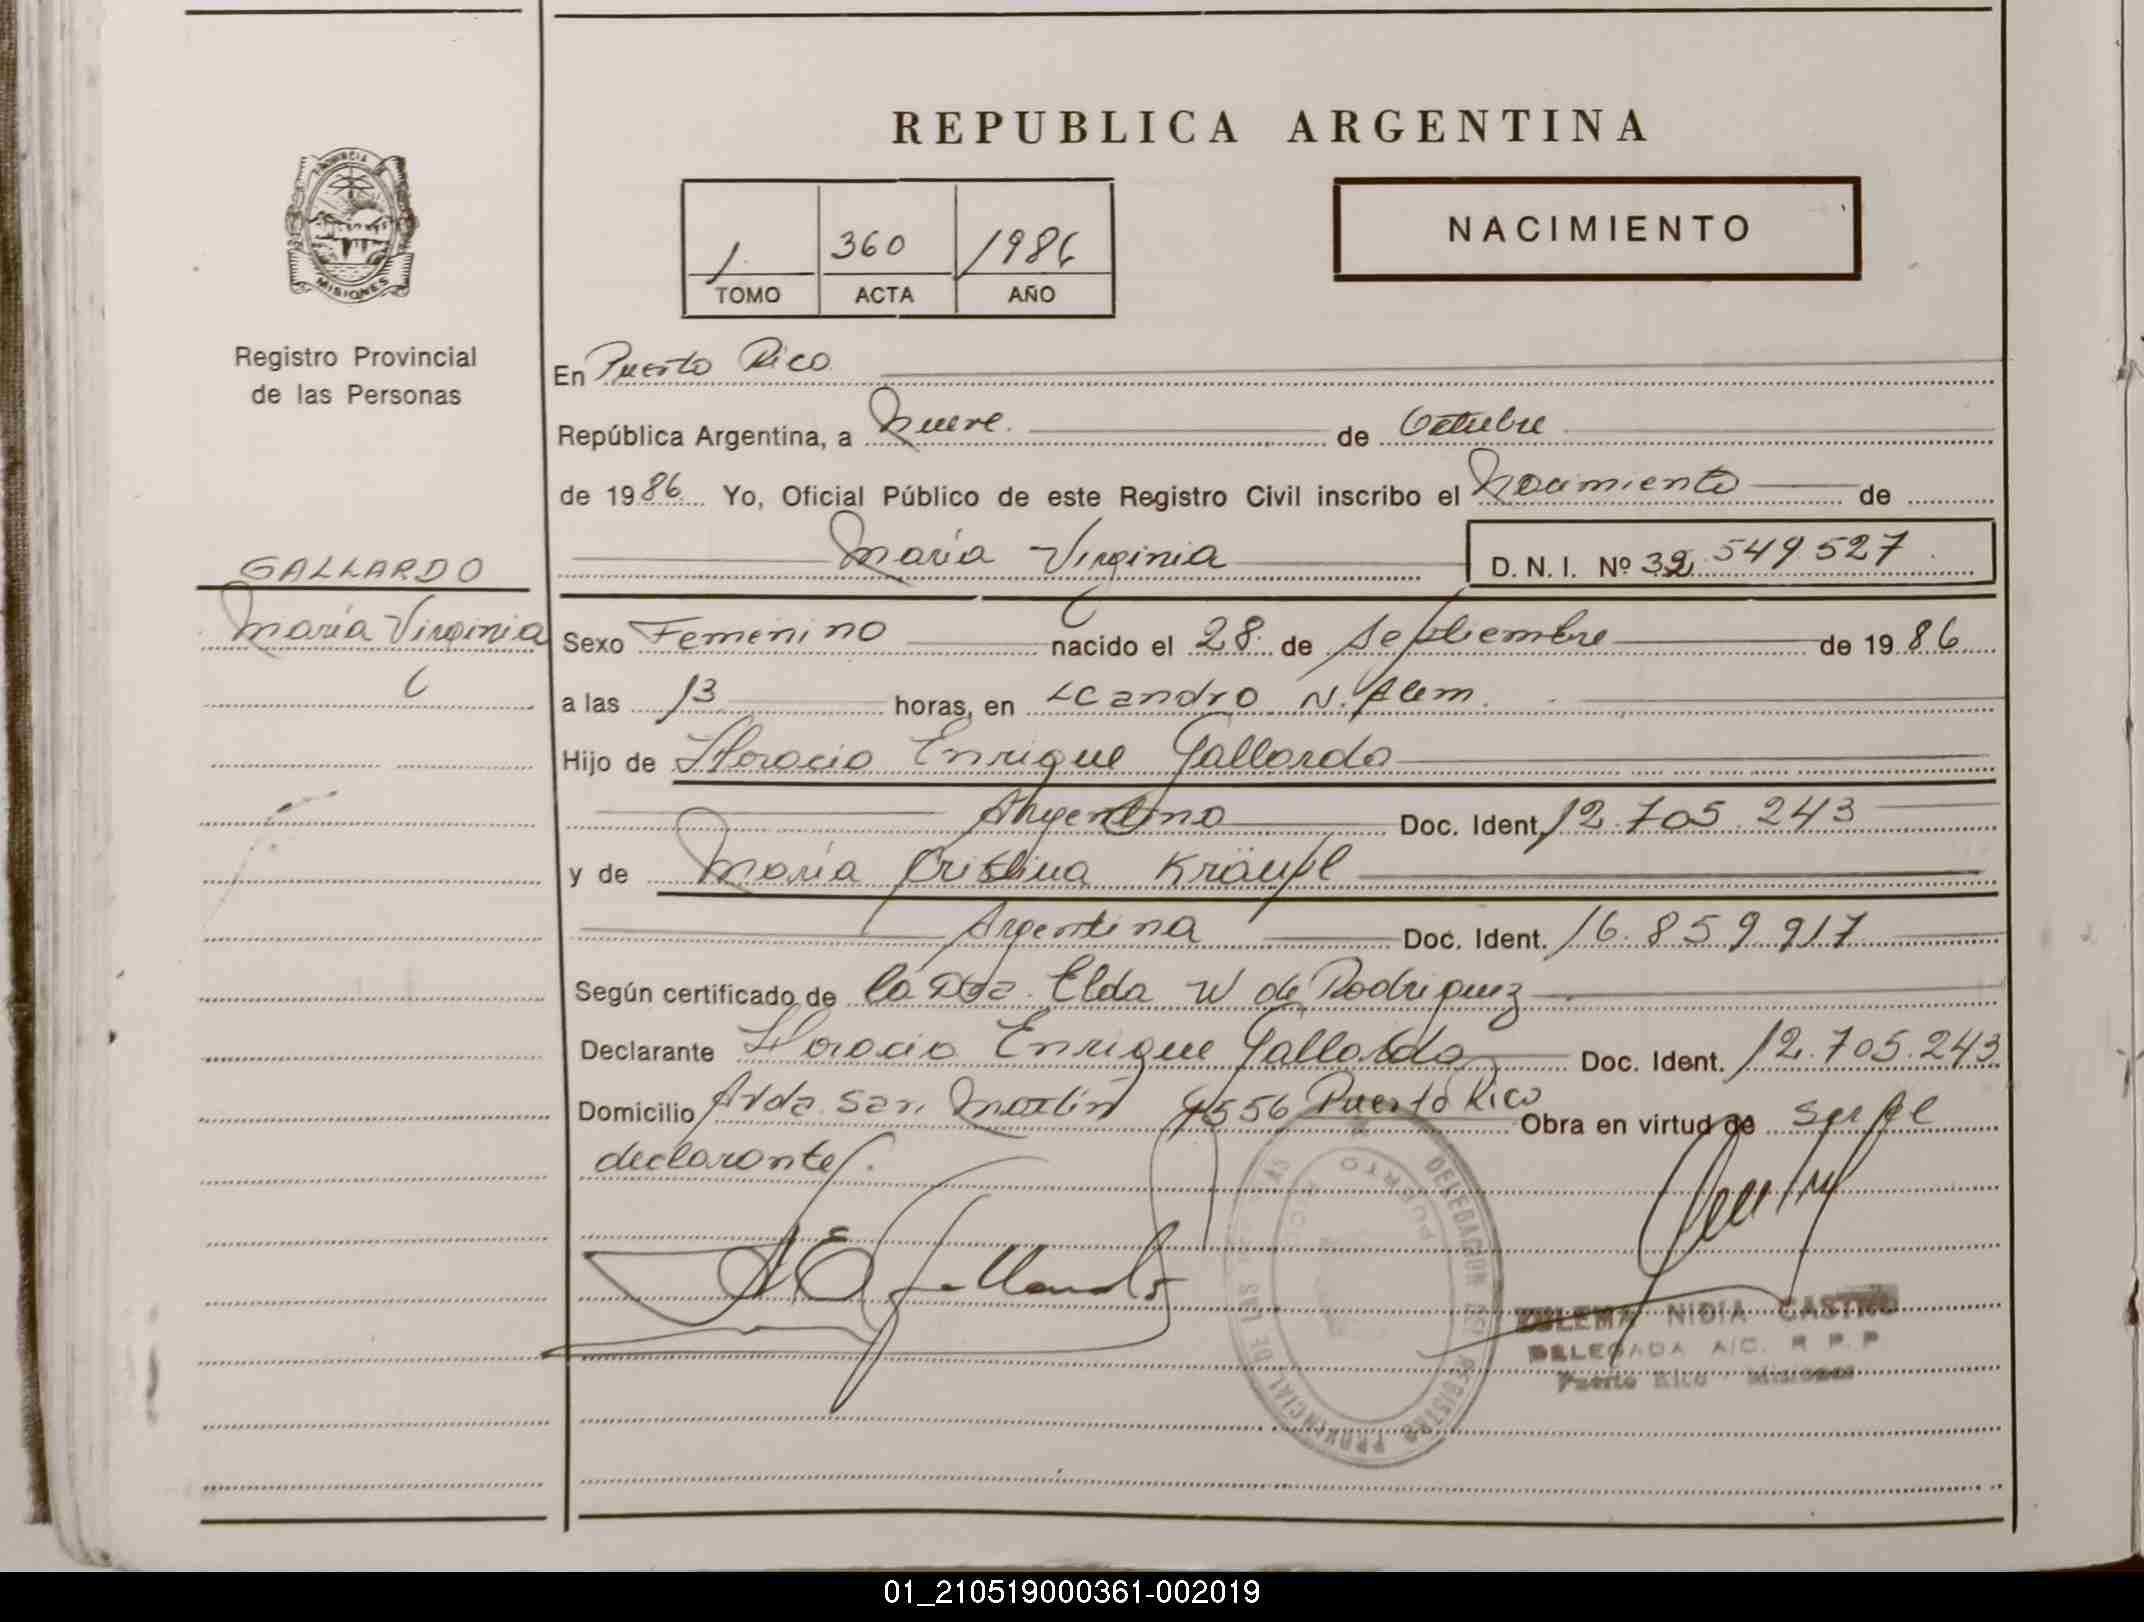 REPUBLICA ARGENTINA
1 360 1986
TOMO ACTA AÑO
NACIMIENTO
PROVINCIA
MISIONES
Registro Provincial
de las Personas
GALLARDO
María Virginia
En Puerto Rico
República Argentina, a Nueve. de Octubre
de 1986 Yo, Oficial Público de este Registro Civil inscribo el Nacimiento de
María Virginia D. N. I. Nº 32 549 527
Sexo Femenino nacido el 28 de Septiembre de 1986
a las 13 horas, en Leandro N. Alem.
Hijo de Horacio Enrique Gallardo
Argentino Doc. Ident. 12.705.243
y de María Cristina Kräupl
Argentina Doc. Ident. 16.859.917
Según certificado de la Dra. Elda W de Rodriguez
Declarante Horacio Enrique Gallardo Doc. Ident. 12.705.243
Domicilio Avda. San Martín 1556 Puerto Rico Obra en virtud de ser el
declarante.
HEGallardo
DELEGACION DEL REGISTRO PROVINCIAL DE LAS
PUERTO
ZULEMA NIDIA CASTRO
DELEGADA A/C. R P. P
Puerto Rico Misiones
01_210519000361-002019